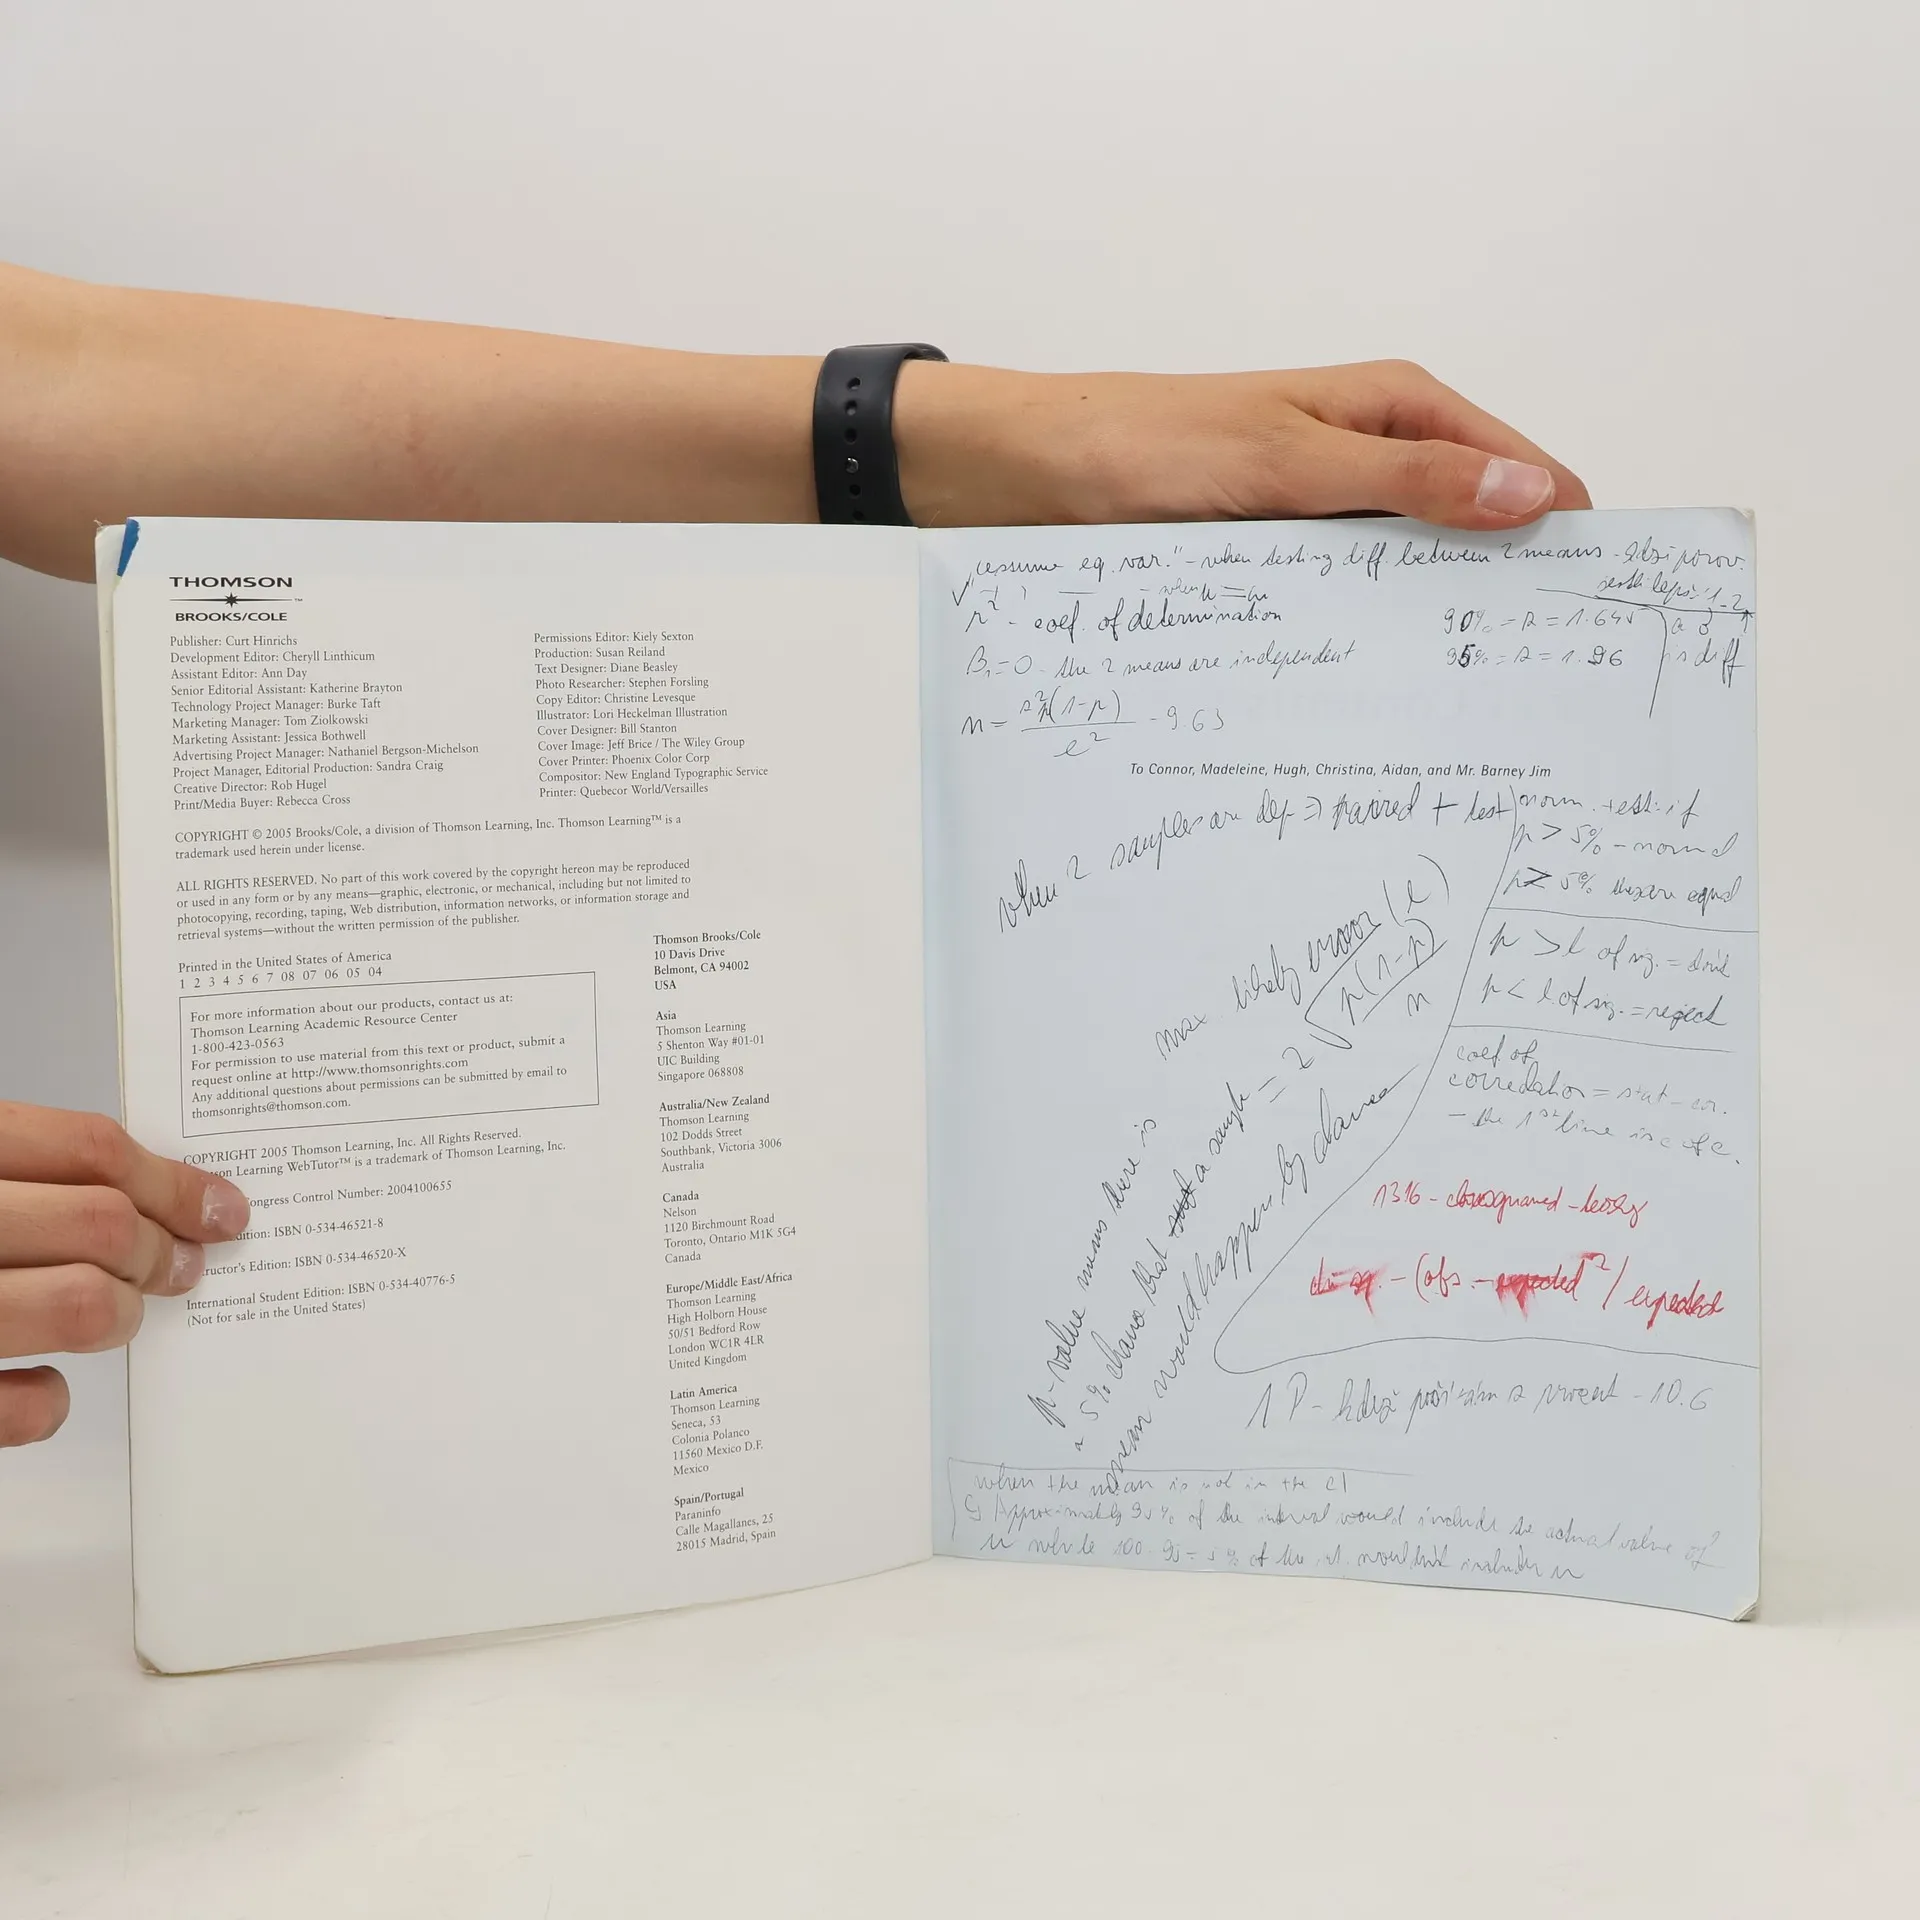 THOMSON
™
BROOKS/COLE
Publisher: Curt Hinrichs
Development Editor: Cheryll Linthicum
Assistant Editor: Ann Day
Senior Editorial Assistant: Katherine Brayton
Technology Project Manager: Burke Taft
Marketing Manager: Tom Ziolkowski
Marketing Assistant: Jessica Bothwell
Advertising Project Manager: Nathaniel Bergson-Michelson
Project Manager, Editorial Production: Sandra Craig
Creative Director: Rob Hugel
Print/Media Buyer: Rebecca Cross
Permissions Editor: Kiely Sexton
Production: Susan Reiland
Text Designer: Diane Beasley
Photo Researcher: Stephen Forsling
Copy Editor: Christine Levesque
Illustrator: Lori Heckelman Illustration
Cover Designer: Bill Stanton
Cover Image: Jeff Brice / The Wiley Group
Cover Printer: Phoenix Color Corp
Compositor: New England Typographic Service
Printer: Quebecor World/Versailles
COPYRIGHT © 2005 Brooks/Cole, a division of Thomson Learning, Inc. Thomson Learning™ is a
trademark used herein under license.
ALL RIGHTS RESERVED. No part of this work covered by the copyright hereon may be reproduced
or used in any form or by any means—graphic, electronic, or mechanical, including but not limited to
photocopying, recording, taping, Web distribution, information networks, or information storage and
retrieval systems—without the written permission of the publisher.
Printed in the United States of America
1 2 3 4 5 6 7 08 07 06 05 04
For more information about our products, contact us at:
Thomson Learning Academic Resource Center
1-800-423-0563
For permission to use material from this text or product, submit a
request online at http://www.thomsonrights.com
Any additional questions about permissions can be submitted by email to
thomsonrights@thomson.com.
COPYRIGHT 2005 Thomson Learning, Inc. All Rights Reserved.
Learning WebTutor™ is a trademark of Thomson Learning, Inc.
Control Number: 2004100655
ISBN 0-534-46521-8
Edition: ISBN 0-534-46520-X
International Student Edition: ISBN 0-534-40776-5
(Not for sale in the United States)
Thomson Brooks/Cole
10 Davis Drive
Belmont, CA 94002
USA
Asia
Thomson Learning
5 Shenton Way #01-01
UIC Building
Singapore 068808
Australia/New Zealand
Thomson Learning
102 Dodds Street
Southbank, Victoria 3006
Australia
Canada
Nelson
1120 Birchmount Road
Toronto, Ontario M1K 5G4
Canada
Europe/Middle East/Africa
Thomson Learning
High Holborn House
50/51 Bedford Row
London WC1R 4LR
United Kingdom
Latin America
Thomson Learning
Seneca, 53
Colonia Polanco
11560 Mexico D.F.
Mexico
Spain/Portugal
Paraninfo
Calle Magallanes, 25
28015 Madrid, Spain
"assume eq. var." - when testing diff. between 2 means
r² - coef. of determination
90% = z = 1.645
B₁ = 0 - the 2 means are independent
95% = z = 1.96
is diff
n = z²p(1-p) / e² - 9.63
To Connor, Madeleine, Hugh, Christina, Aidan, and Mr. Barney Jim
when 2 samples are dep => paired t test
norm. test: if
p > 5% - normal
5% they are equal
p > l of sig. = don't
p < l. of sig. = reject
max. likely error (e)
= 2 √ p(1-p) / n
coef. of
correlation = stat - cor.
- the 1st line is c of c.
p-value means there is
a 5% chance that a sample
mean would happen by chance
1316
chi-sq. - (obs. - expected)² / expected
1 P - když - 10.6
when the mean is not in the CI
Approximately 95% of the interval would include the actual value of
while 100 - 95 = 5% of the int. wouldn't include